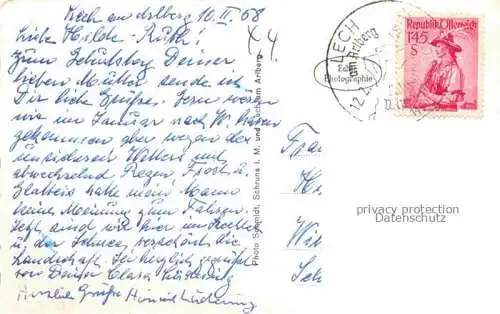 Lech am Arlberg 10. II. 58
Liebe Hilde-Ruth!
Zum Geburtstag Deiner
lieben Mutter sende ich
Dir liebe Grüsse. Gern wären
wir im Januar nach W.
gekommen aber wegen des
unsicheren Wetters mit
abwechselnd Regen, Frost u.
Glatteis hatte mein Mann
keine Meinung zum Fahren.
Jetzt sind wir hier in
u. der Schnee verschönt die
Landschaft. Sei herzlich gegrüßt
von Deiner Clara
Herzliche Grüße
Photo Schmidt, Schruns i. M. und Lech am Arlberg
LECH
am Arlberg
Echte
Photographie
12.2.
Republik Österreich
1.45
S
Fra
H
Wi
Sc
privacy protection
Datenschutz